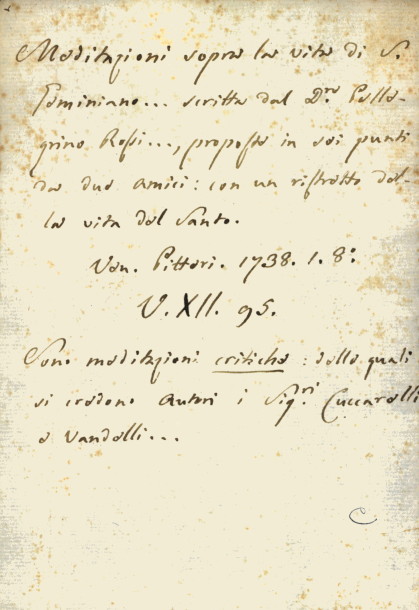 Meditazioni sopra la vita di S.
Geminiano... scritta dal D.re Pelle-
grino Rossi..., proposte in sei punti
da due amici: con un ristretto del-
la vita del Santo.
Ven. Pitteri. 1738. 1. 8:
V. XII. 95.
Sono meditazioni critiche: delle quali
si credono autori i Sig.ri Ceccarelli
e Vandelli...